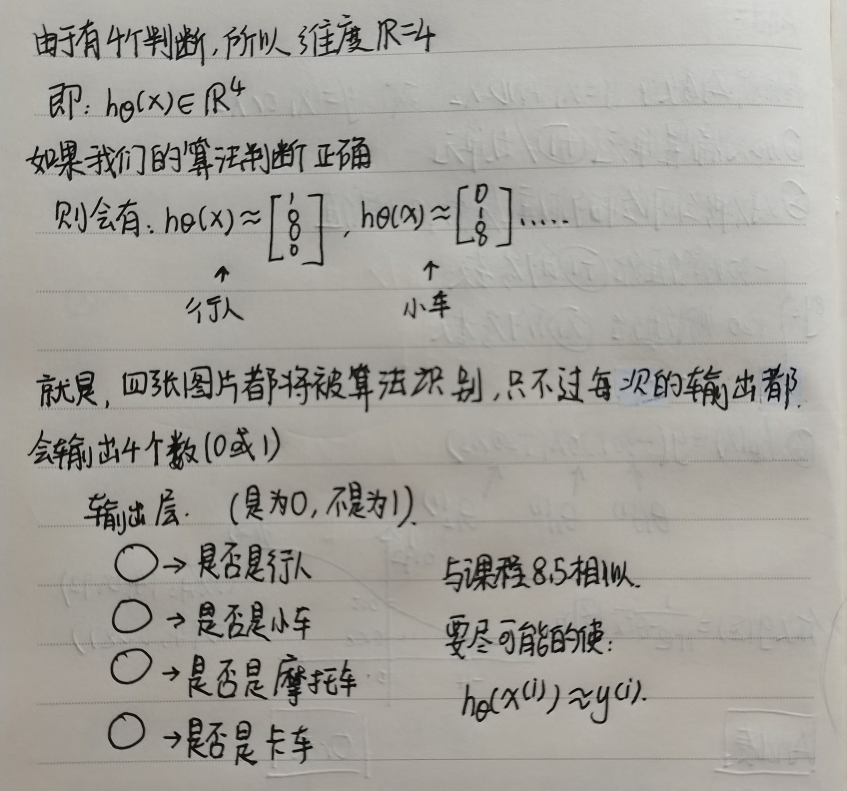 由于有4个判断,所以维度ℝ=4
即: hθ(x)∈ℝ⁴
如果我们的算法判断正确
则会有: hθ(x)≈[1 0 0 0], hθ(x)≈[0 1 0 0].....
↑ ↑
行人 小车
就是,四张图片都将被算法识别,只不过每次的输出都
会输出4个数(0或1)
输出层. (是为0,不是为1).
○→是否是行人
○→是否是小车
○→是否是摩托车
○→是否是卡车
与课程8.5相似.
要尽可能的使:
hθ(x⁽ⁱ⁾)≈y⁽ⁱ⁾.